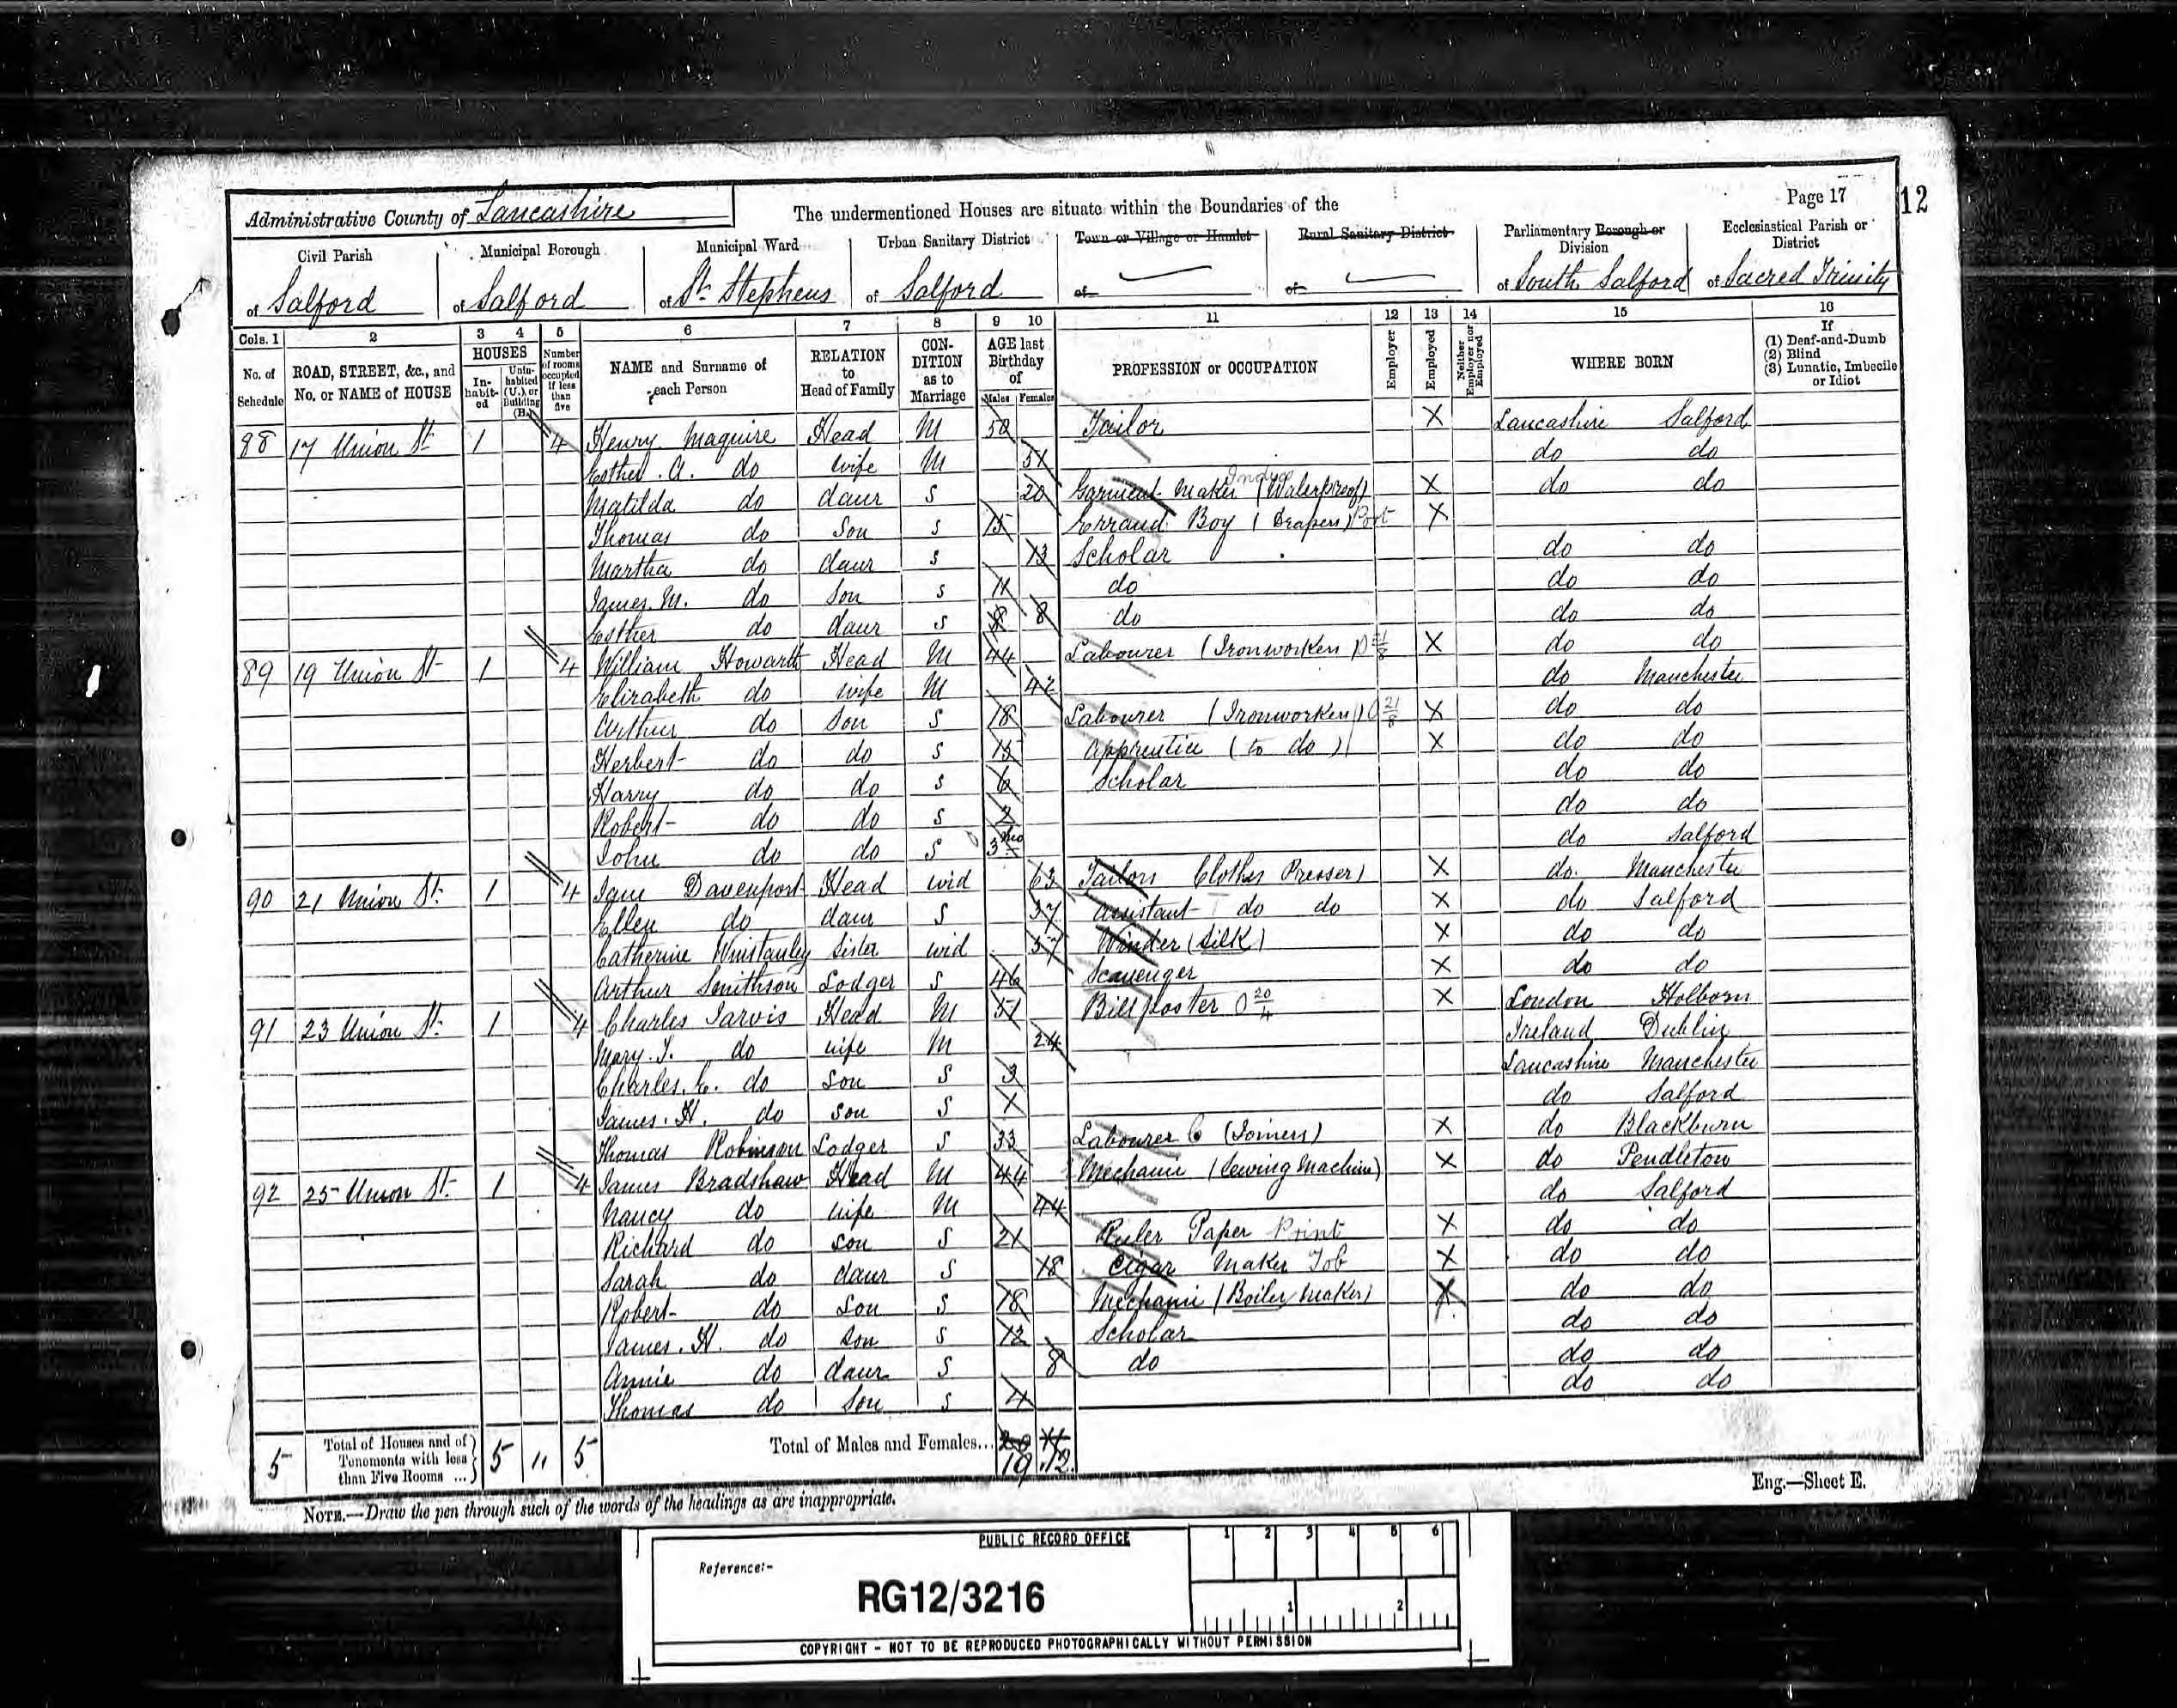 Page 17
12
Administrative County of Lancashire
The undermentioned Houses are situate within the Boundaries of the
Civil Parish of Salford
Municipal Borough of Salford
Municipal Ward of St. Stephens
Urban Sanitary District of Salford
Town or Village or Hamlet of
Rural Sanitary District of
Parliamentary Borough or Division of South Salford
Ecclesiastical Parish or District of Sacred Trinity
Cols. 1 2 3 4 5 6 7 8 9 10 11 12 13 14 15 16
No. of Schedule
ROAD, STREET, &c., and No. or NAME of HOUSE
HOUSES
In-habit-ed
Unin-habited (U.), or Building (B.)
Number of rooms occupied if less than five
NAME and Surname of each Person
RELATION to Head of Family
CON-DITION as to Marriage
AGE last Birthday of
Males Females
PROFESSION or OCCUPATION
Employer
Employed
Neither Employer nor Employed
WHERE BORN
If (1) Deaf-and-Dumb (2) Blind (3) Lunatic, Imbecile or Idiot
88 17 Union St. 1 4 Henry Maguire Head M 50 Tailor X Lancashire Salford
Esther. A. do wife M 51 do do
Matilda do daur S 20 Garment Maker (Waterproof) X do do
Thomas do Son S 15 Errand Boy (Drapers) Port X
Martha do daur S 13 Scholar do do
James. M. do Son S 11 do do do
Esther do daur S 8 8 do do do
89 19 Union St 1 4 William Howarth Head M 44 Labourer (Ironworkers) O 21/8 X do do
Elizabeth do wife M 42 do Manchester
Arthur do Son S 18 Labourer (Ironworkers) O 21/8 X do do
Herbert do do S 15 Apprentice (to do) X do do
Harry do do S 6 Scholar do do
Robert do do S 2 do do
John do do S 3 mo do Salford
90 21 Union St. 1 4 Jane Davenport Head wid 63 Tailors Clothes Presser) X do. Manchester
Ellen do daur S 37 Assistant do do X do Salford
Catherine Winstanley Sister wid 57 Winder (Silk) X do do
Arthur Smithson Lodger S 46 Scavenger X do do
91 23 Union St. 1 4 Charles Jarvis Head M 51 Billposter O 20/4 X London Holborn
Mary. J. do wife M 24 Ireland Dublin
Charles. E. do Son S 3 Lancashire Manchester
James. H. do Son S 1 do Salford
Thomas Robinson Lodger S 33 Labourer C (Joiners) X do Blackburn
92 25 Union St. 1 4 James Bradshaw Head M 44 Mechanic (Sewing Machine) X do Pendleton
Nancy do wife M 44 do Salford
Richard do Son S 21 Ruler Paper Print X do do
Sarah do daur S 18 Cigar Maker Tob X do do
Robert do Son S 18 Mechanic (Boiler Maker) X do do
James. H. do Son S 12 Scholar do do
Annie do daur S 8 do do do
Thomas do Son S 4 do do
5 Total of Houses and of Tenements with less than Five Rooms ... 5 " 5 Total of Males and Females... 20 11
19 12.
NOTE.—Draw the pen through such of the words of the headings as are inappropriate.
Eng.—Sheet E.
PUBLIC RECORD OFFICE
1 2 3 4 5 6
Reference:-
RG12/3216
1 2
COPYRIGHT - NOT TO BE REPRODUCED PHOTOGRAPHICALLY WITHOUT PERMISSION